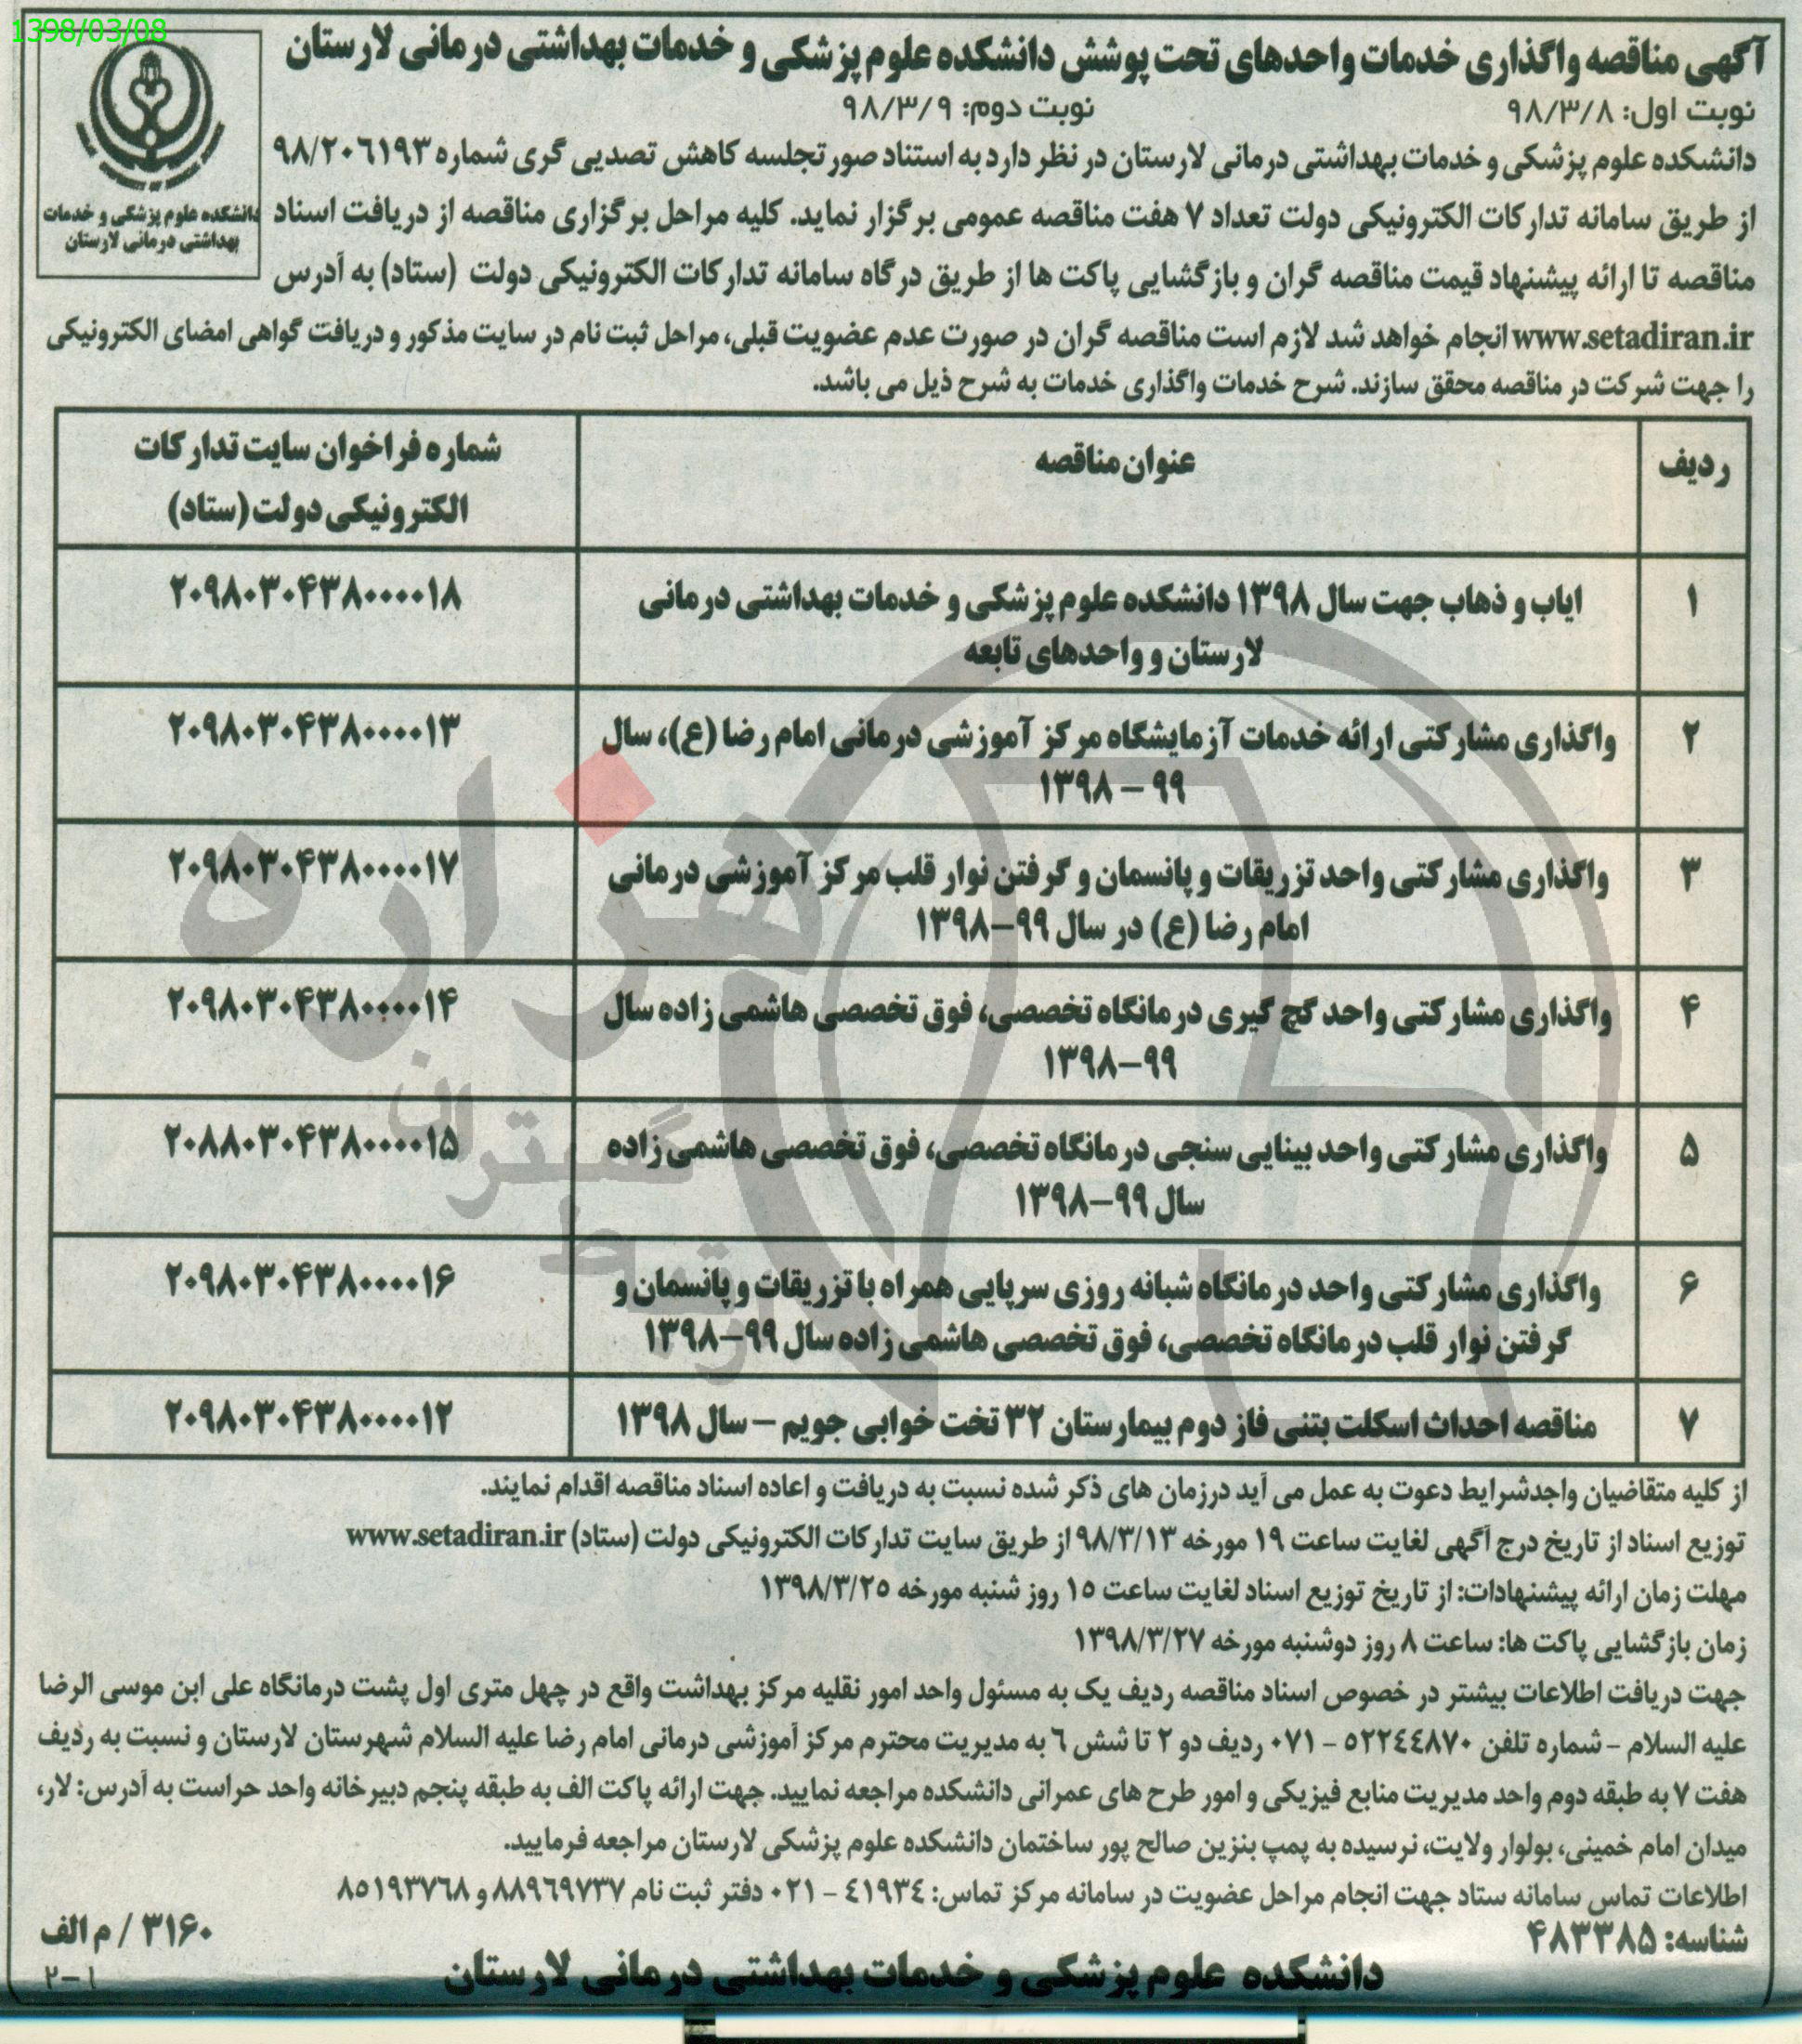 1398/03/08
آگهی مناقصه واگذاری خدمات واحدهای تحت پوشش دانشکده علوم پزشکی و خدمات بهداشتی درمانی لارستان
نوبت اول: ۹۸/۳/۸
نوبت دوم: ۹۸/۳/۹
دانشکده علوم پزشکی و خدمات
بهداشتی درمانی لارستان
دانشکده علوم پزشکی و خدمات بهداشتی درمانی لارستان در نظر دارد به استناد صورتجلسه کاهش تصدیی گری شماره ۹۸/۲۰۶۱۹۳
از طریق سامانه تدارکات الکترونیکی دولت تعداد ۷ هفت مناقصه عمومی برگزار نماید. کلیه مراحل برگزاری مناقصه از دریافت اسناد
مناقصه تا ارائه پیشنهاد قیمت مناقصه گران و بازگشایی پاکت ها از طریق درگاه سامانه تدارکات الکترونیکی دولت (ستاد) به آدرس
www.setadiran.ir انجام خواهد شد لازم است مناقصه گران در صورت عدم عضویت قبلی، مراحل ثبت نام در سایت مذکور و دریافت گواهی امضای الکترونیکی
را جهت شرکت در مناقصه محقق سازند. شرح خدمات واگذاری خدمات به شرح ذیل می باشد.
ردیف
عنوان مناقصه
شماره فراخوان سایت تدارکات
الکترونیکی دولت (ستاد)
۱
ایاب و ذهاب جهت سال ۱۳۹۸ دانشکده علوم پزشکی و خدمات بهداشتی درمانی
لارستان و واحدهای تابعه
۲۰۹۸۰۳۰۴۳۸۰۰۰۰۱۸
۲
واگذاری مشارکتی ارائه خدمات آزمایشگاه مرکز آموزشی درمانی امام رضا (ع)، سال
۹۹ – ۱۳۹۸
۲۰۹۸۰۳۰۴۳۸۰۰۰۰۱۳
۳
واگذاری مشارکتی واحد تزریقات و پانسمان و گرفتن نوار قلب مرکز آموزشی درمانی
امام رضا (ع) در سال ۹۹–۱۳۹۸
۲۰۹۸۰۳۰۴۳۸۰۰۰۰۱۷
۴
واگذاری مشارکتی واحد گچ گیری درمانگاه تخصصی، فوق تخصصی هاشمی زاده سال
۹۹–۱۳۹۸
۲۰۹۸۰۳۰۴۳۸۰۰۰۰۱۴
۵
واگذاری مشارکتی واحد بینایی سنجی درمانگاه تخصصی، فوق تخصصی هاشمی زاده
سال ۹۹–۱۳۹۸
۲۰۸۸۰۳۰۴۳۸۰۰۰۰۱۵
۶
واگذاری مشارکتی واحد درمانگاه شبانه روزی سرپایی همراه با تزریقات و پانسمان و
گرفتن نوار قلب درمانگاه تخصصی، فوق تخصصی هاشمی زاده سال ۹۹–۱۳۹۸
۲۰۹۸۰۳۰۴۳۸۰۰۰۰۱۶
۷
مناقصه احداث اسکلت بتنی فاز دوم بیمارستان ۳۲ تخت خوابی جویم – سال ۱۳۹۸
۲۰۹۸۰۳۰۴۳۸۰۰۰۰۱۲
هزاره
گستران
از کلیه متقاضیان واجدشرایط دعوت به عمل می آید درزمان های ذکر شده نسبت به دریافت و اعاده اسناد مناقصه اقدام نمایند.
توزیع اسناد از تاریخ درج آگهی لغایت ساعت ۱۹ مورخه ۹۸/۳/۱۳ از طریق سایت تدارکات الکترونیکی دولت (ستاد) www.setadiran.ir
مهلت زمان ارائه پیشنهادات: از تاریخ توزیع اسناد لغایت ساعت ۱۵ روز شنبه مورخه ۱۳۹۸/۳/۲۵
زمان بازگشایی پاکت ها: ساعت ۸ روز دوشنبه مورخه ۱۳۹۸/۳/۲۷
جهت دریافت اطلاعات بیشتر در خصوص اسناد مناقصه ردیف یک به مسئول واحد امور نقلیه مرکز بهداشت واقع در چهل متری اول پشت درمانگاه علی ابن موسی الرضا
علیه السلام – شماره تلفن ۵۲۲٤٤۸۷۰ – ۰۷۱ ردیف دو ۲ تا شش ٦ به مدیریت محترم مرکز آموزشی درمانی امام رضا علیه السلام شهرستان لارستان و نسبت به ردیف
هفت ۷ به طبقه دوم واحد مدیریت منابع فیزیکی و امور طرح های عمرانی دانشکده مراجعه نمایید. جهت ارائه پاکت الف به طبقه پنجم دبیرخانه واحد حراست به آدرس: لار،
میدان امام خمینی، بولوار ولایت، نرسیده به پمپ بنزین صالح پور ساختمان دانشکده علوم پزشکی لارستان مراجعه فرمایید.
اطلاعات تماس سامانه ستاد جهت انجام مراحل عضویت در سامانه مرکز تماس: ٤۱۹۳٤ – ۰۲۱ دفتر ثبت نام ۸۸۹٦۹۷۳۷ و ۸۵۱۹۳۷٦۸
شناسه: ۴۸۳۳۸۵
۳۱۶۰ / م الف
دانشکده علوم پزشکی و خدمات بهداشتی درمانی لارستان
۲–۱